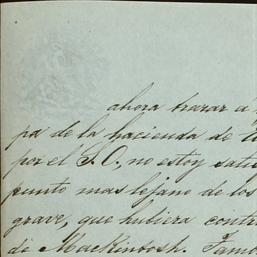 ahora trazar a
pa de la hacienda de
por el S.O., no estoy satis
punto mas lejano de los
grave, que hubiera contr
de Mackintosh. Tamp